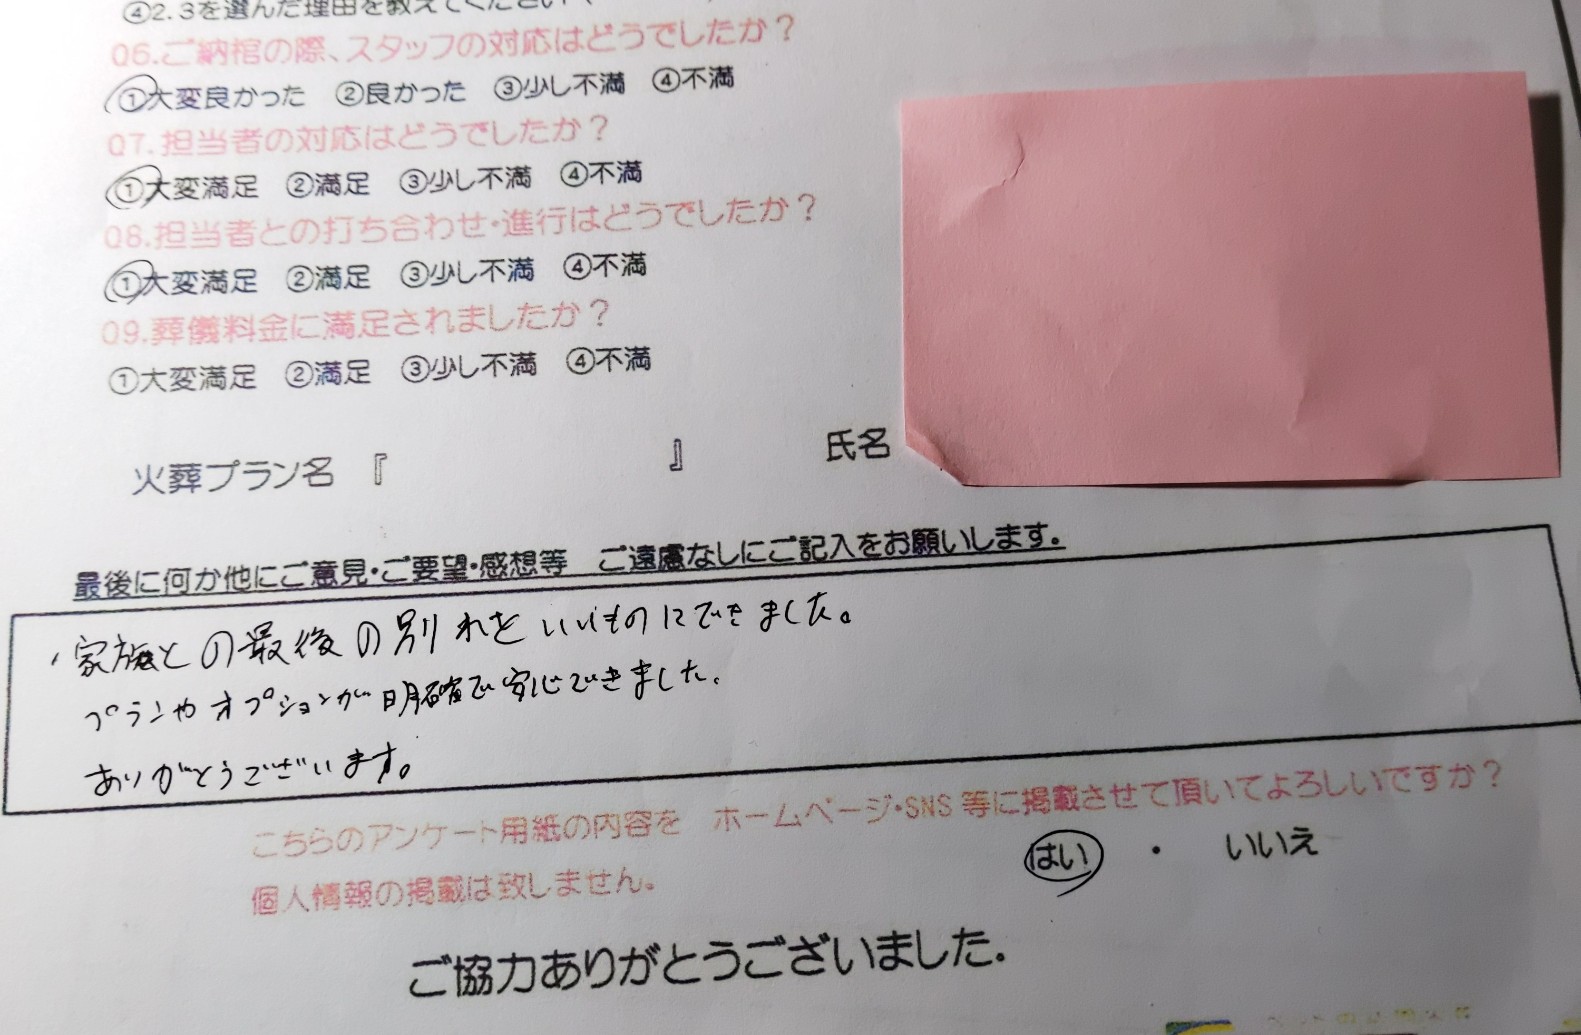 ④2.3を選んだ理由を教えてください
Q6.ご納棺の際、スタッフの対応はどうでしたか？
①大変良かった ②良かった ③少し不満 ④不満
Q7.担当者の対応はどうでしたか？
①大変満足 ②満足 ③少し不満 ④不満
Q8.担当者との打ち合わせ・進行はどうでしたか？
①大変満足 ②満足 ③少し不満 ④不満
Q9.葬儀料金に満足されましたか？
①大変満足 ②満足 ③少し不満 ④不満
火葬プラン名 『 』 氏名
最後に何か他にご意見・ご要望・感想等 ご遠慮なしにご記入をお願いします。
・家族との最後の別れをいいものにできました。
プランやオプションが明確で安心できました。
ありがとうございます。
こちらのアンケート用紙の内容を ホームページ・SNS 等に掲載させて頂いてよろしいですか？
個人情報の掲載は致しません。
はい ・ いいえ
ご協力ありがとうございました。